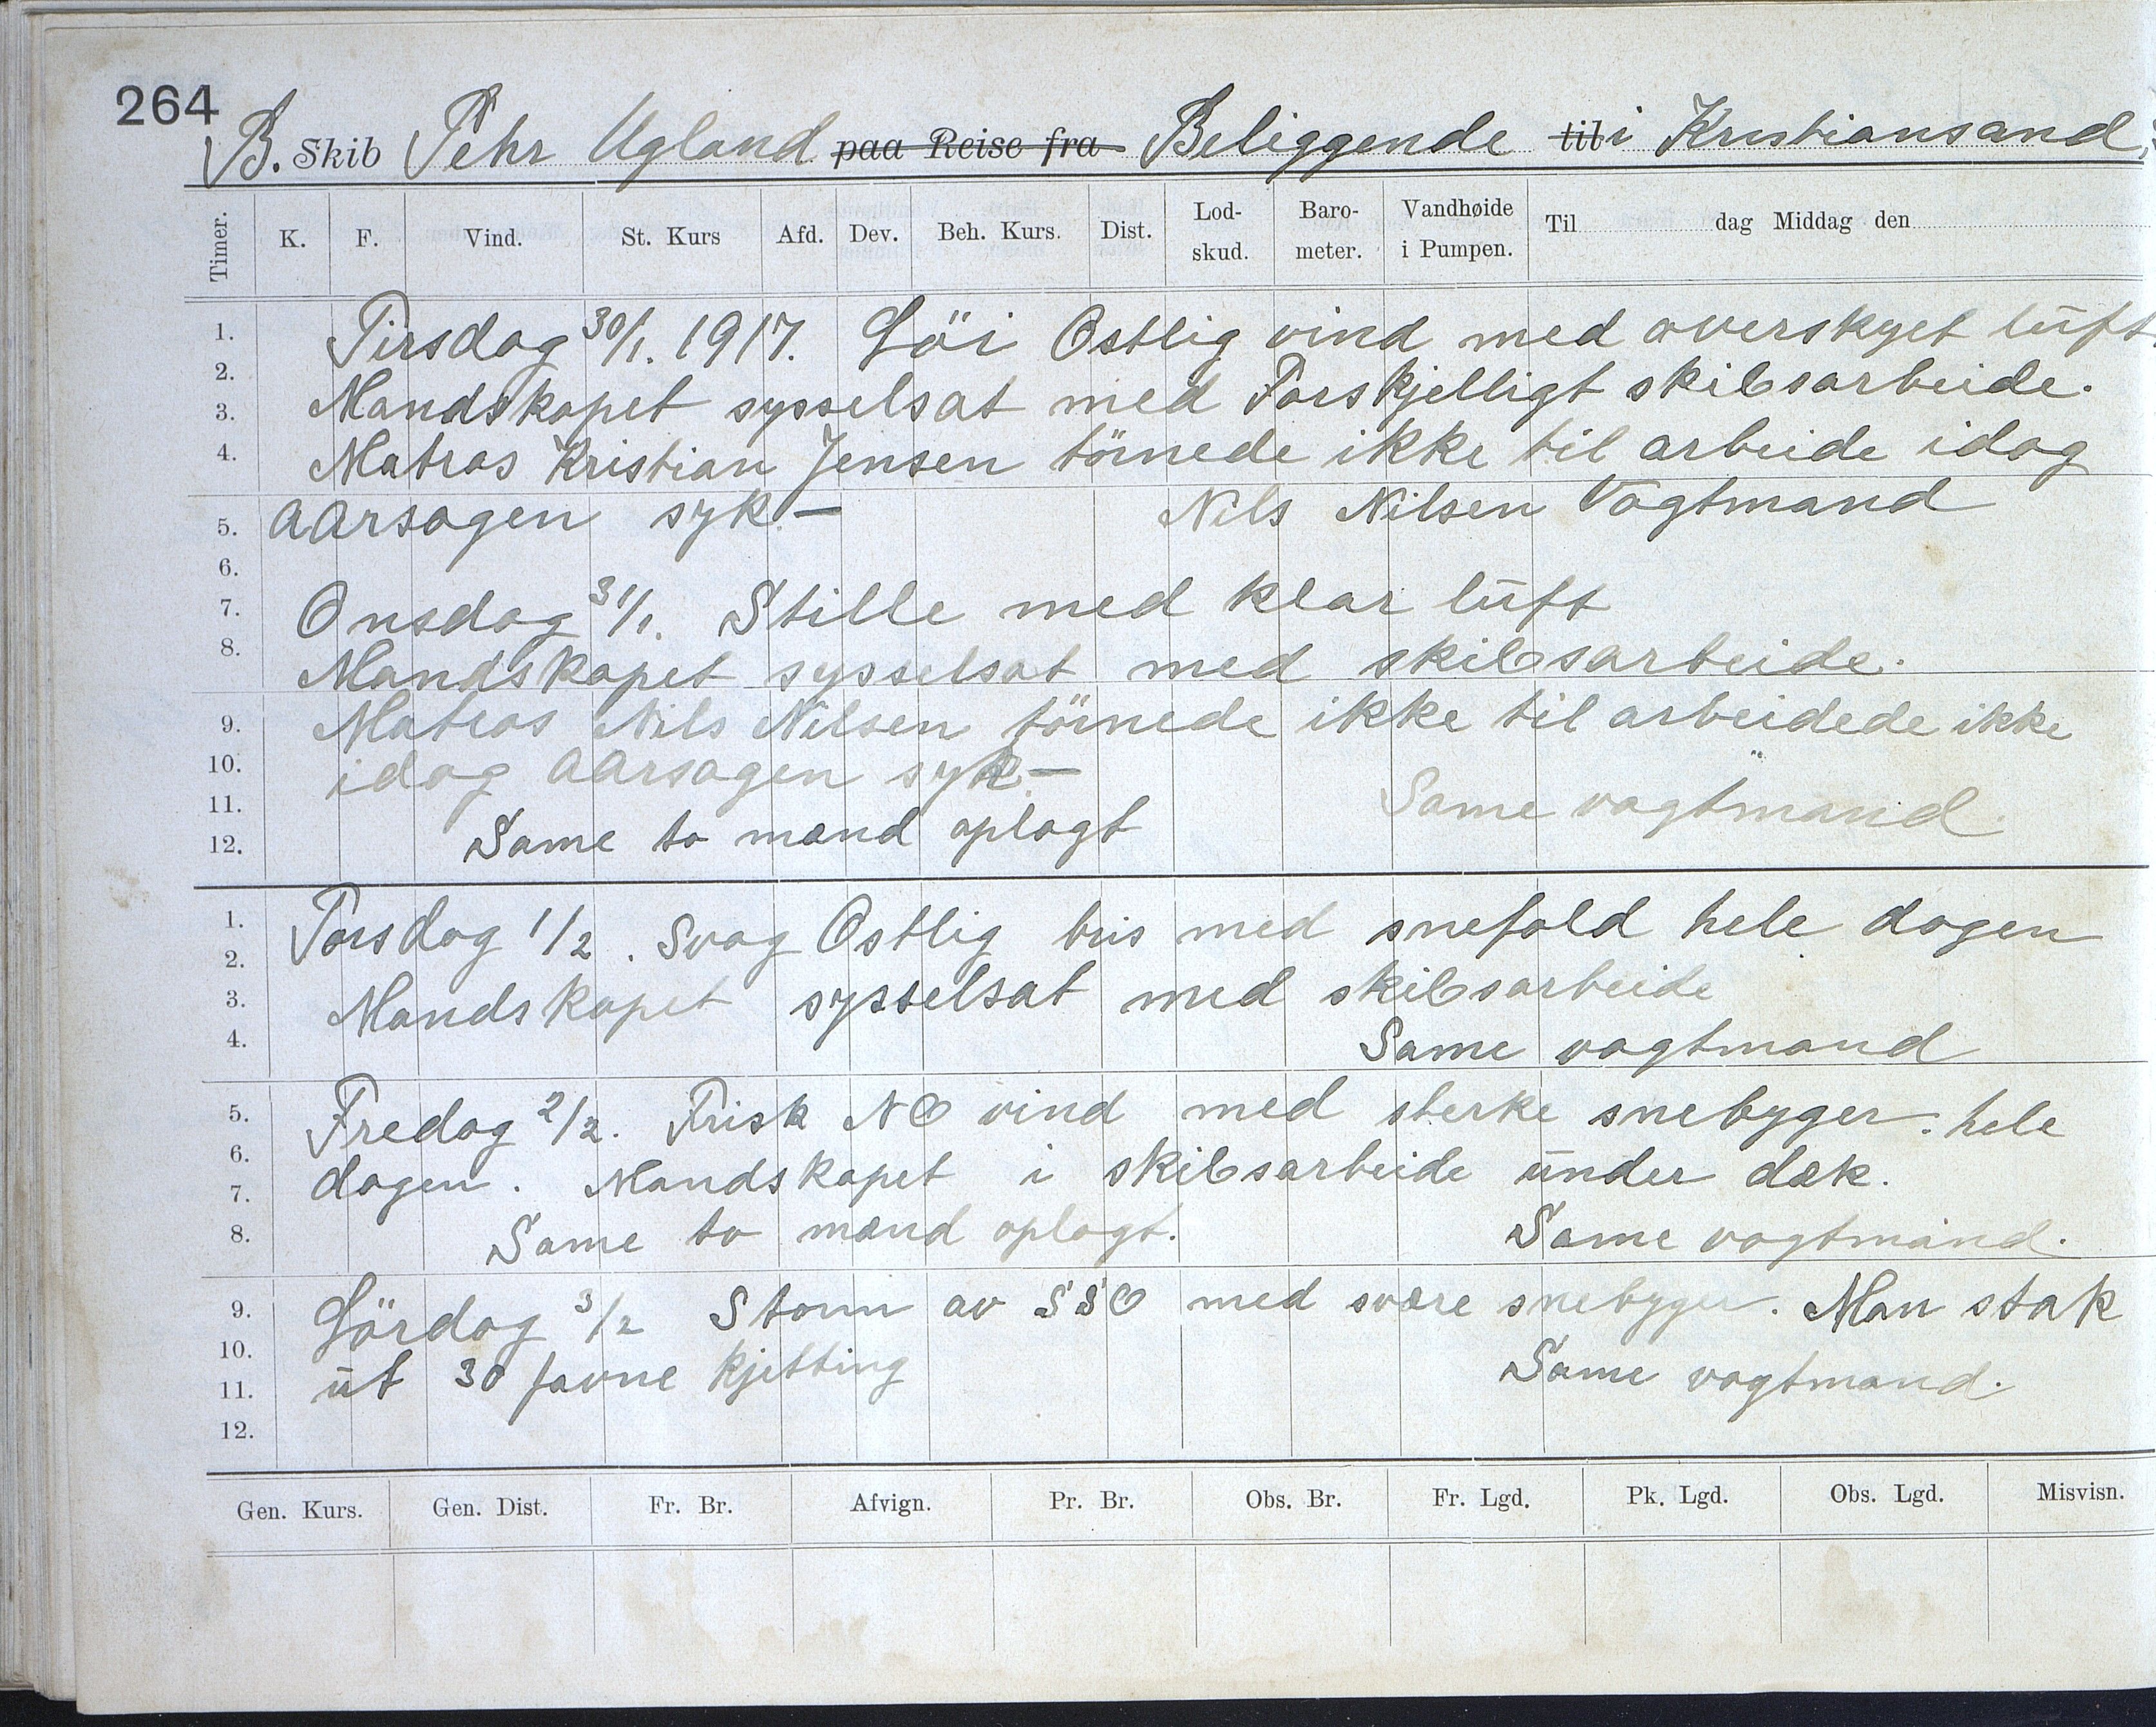 264
B. Skib Pehr Ugland paa Reise fra Beliggende til i Kristiansand,
Timer. K. F. Vind. St. Kurs Afd. Dev. Beh. Kurs. Dist. Lod-skud. Baro-meter. Vandhøide i Pumpen. Til dag Middag den
1. Tirsdag 30/1. 1917. Löi Ostlig vind med overskyet luft.
2. Mandskapet sysselsat med Forskjelligt skibsarbeide.
3.
4. Matros Kristian Jensen törnede ikke til arbeide idag
5. aarsagen syk.— Nils Nilsen Vagtmand
6.
7. Onsdag 31/1. Stille med klar luft
8. Mandskapet sysselsat med skibsarbeide.
9. Matros Nils Nilsen törnede ikke til arbeidede ikke
10. idag aarsagen syk.—
11. Same vagtmand.
12. Same to mand oplagt
1. Torsdag 1/2. Svag Ostlig bris med snefald hele dagen
2.
3. Mandskapet sysselsat med skibsarbeide
4. Same vagtmand
5. Fredag 2/2. Frisk NO vind med sterke snebyger. hele
6.
7. dagen. Mandskapet i skibsarbeide under dæk.
8. Same to mand oplagt. Same vagtmand.
9. Lördag 3/2 Storm av SSO med svære snebyger. Man stak
10.
11. ut 30 favne kjetting Same vagtmand.
12.
Gen. Kurs. Gen. Dist. Fr. Br. Afvign. Pr. Br. Obs. Br. Fr. Lgd. Pk. Lgd. Obs. Lgd. Misvisn.